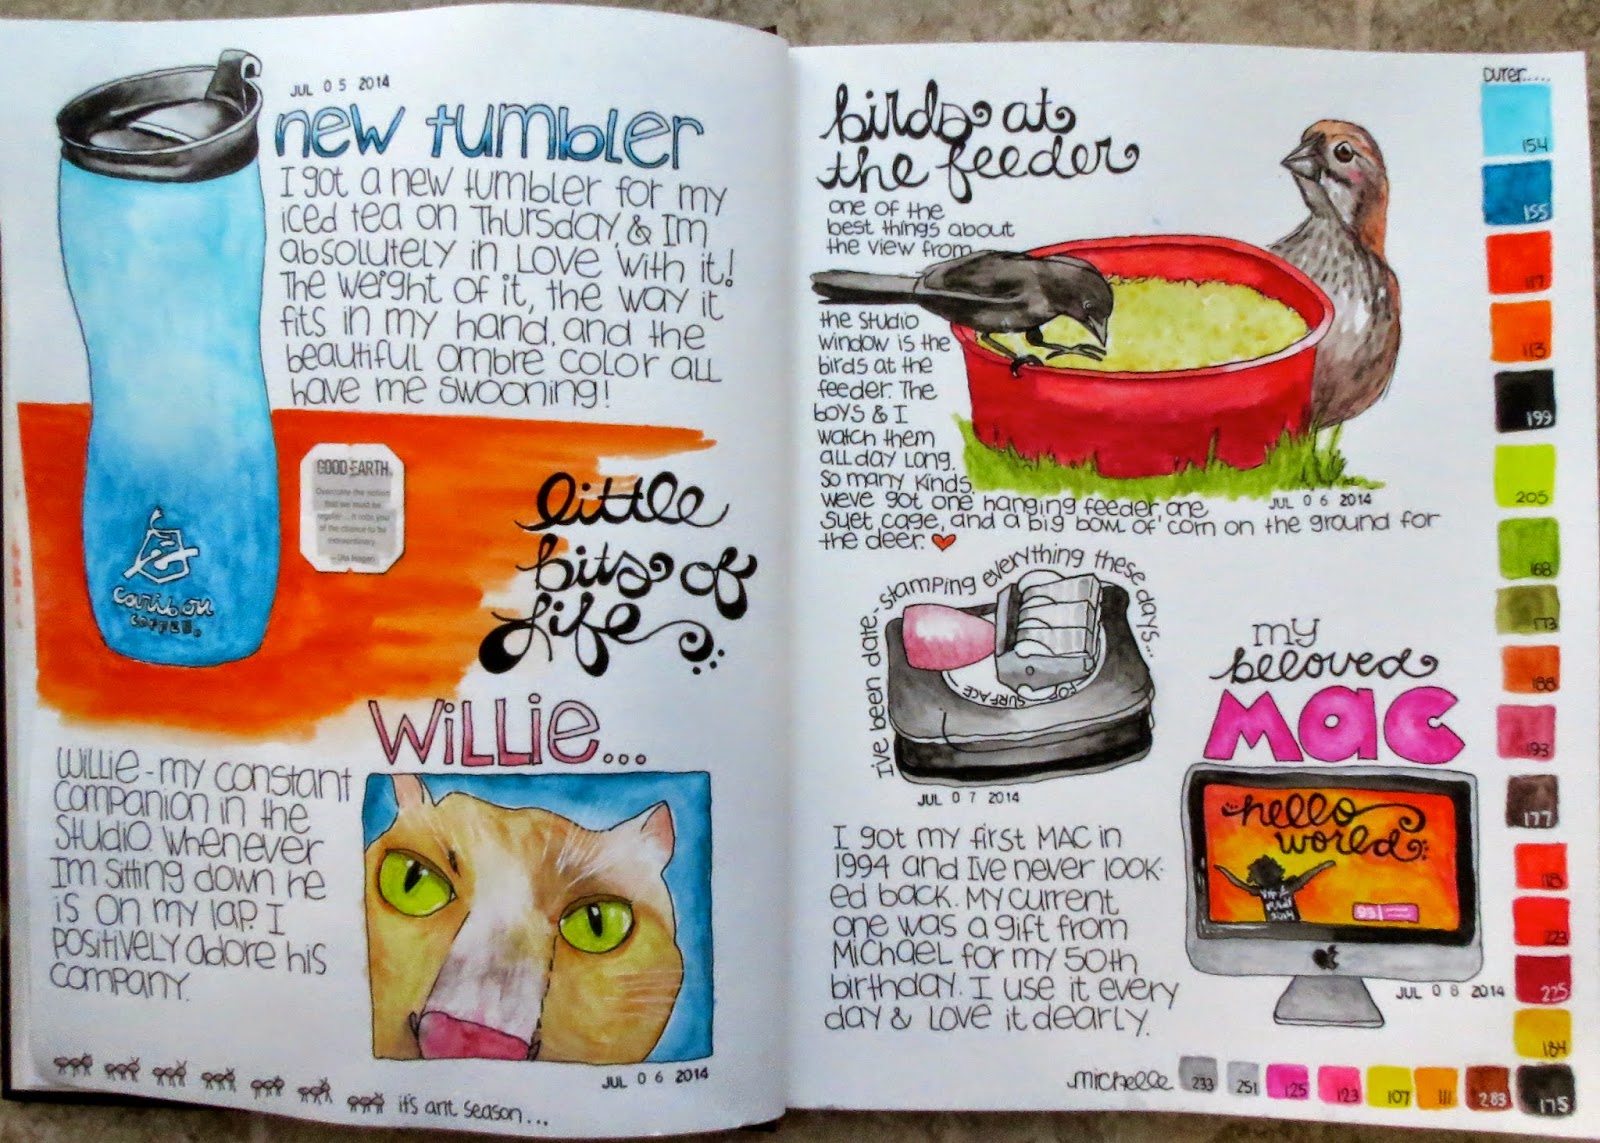 JUL 05 2014
new tumbler
I got a new tumbler for my
iced tea on Thursday, & Im
absolutely in Love with it!
The weight of it, the way it
fits in my hand, and the
beautiful ombre color all
have me swooning!
caribou
coffee.
GOOD EARTH
Overcome the notion
that we must be
regular... it robs you
of the chance to be
extraordinary.
—Uta Hagen
little
bits of
life
Willie...
Willie - my constant
companion in the
studio. Whenever
Im sitting down he
is on my lap. I
positively adore his
company.
JUL 06 2014
it's ant season...
birds at
the feeder
one of the
best things about
the view from
the studio
window is the
birds at the
feeder. The
boys & I
watch them
all day long.
So many kinds
weve got one hanging feeder one
suet cage, and a big bowl of corn on the ground for
the deer.
JUL 06 2014
I've been date-stamping everything these days...
FOR
SURFACE
JUL 07 2014
my
beloved
mac
hello
world
931
JUL 08 2014
I got my first MAC in
1994 and Ive never look-
ed back. My current
one was a gift from
Michael for my 50th
birthday. I use it every
day & love it dearly.
Durer.....
154
155
117
113
199
205
168
173
188
193
177
118
223
225
184
michelle
233
251
125
123
107
111
283
175